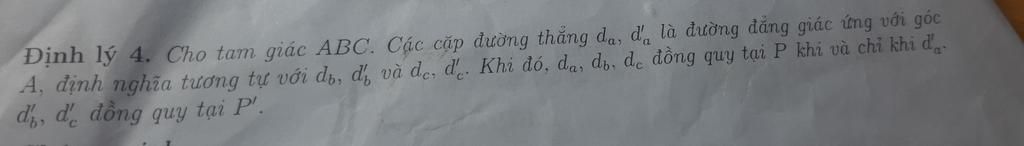 Định lý 4. Cho tam giác ABC. Các cặp đường thẳng dₐ, d'ₐ là đường đẳng giác ứng với góc
A, định nghĩa tương tự với d_b, d'_b và d_c, d'_c. Khi đó, dₐ, d_b, d_c đồng quy tại P khi và chỉ khi d'ₐ,
d'_b, d'_c đồng quy tại P'.